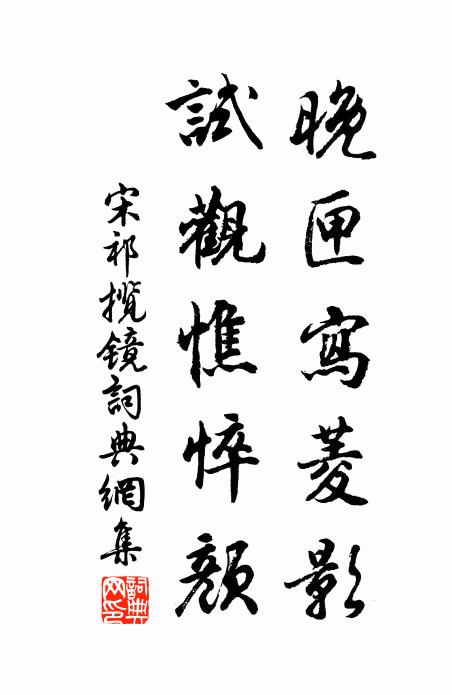 晚匣寫菱影
試觀憔悴顏
宋祁攬鏡詞典網集
詞典网印